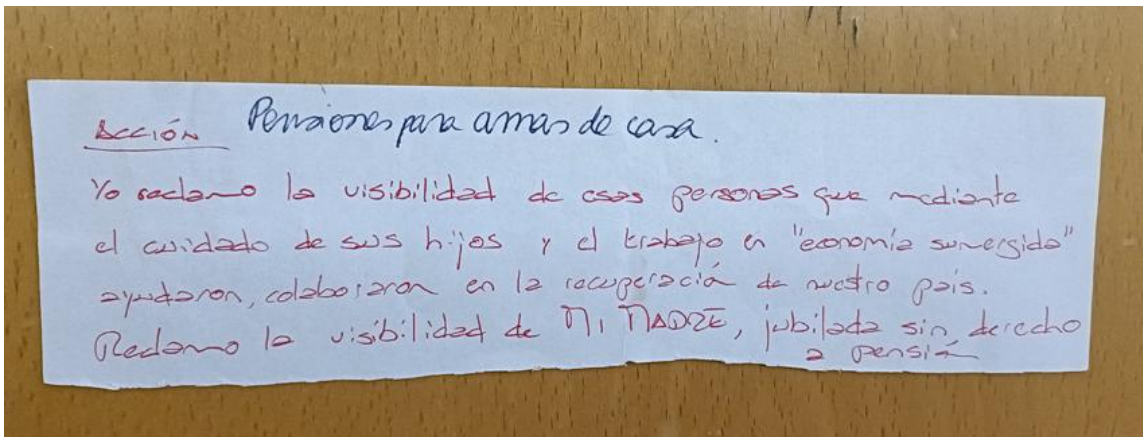 Acción Pensiones para amas de casa.
Yo reclamo la visibilidad de esas personas que mediante
el cuidado de sus hijos y el trabajo en "economía sumergida"
ayudaron, colaboraron en la recuperación de nuestro país.
Reclamo la visibilidad de MI MADRE, jubilada sin derecho
a pensión